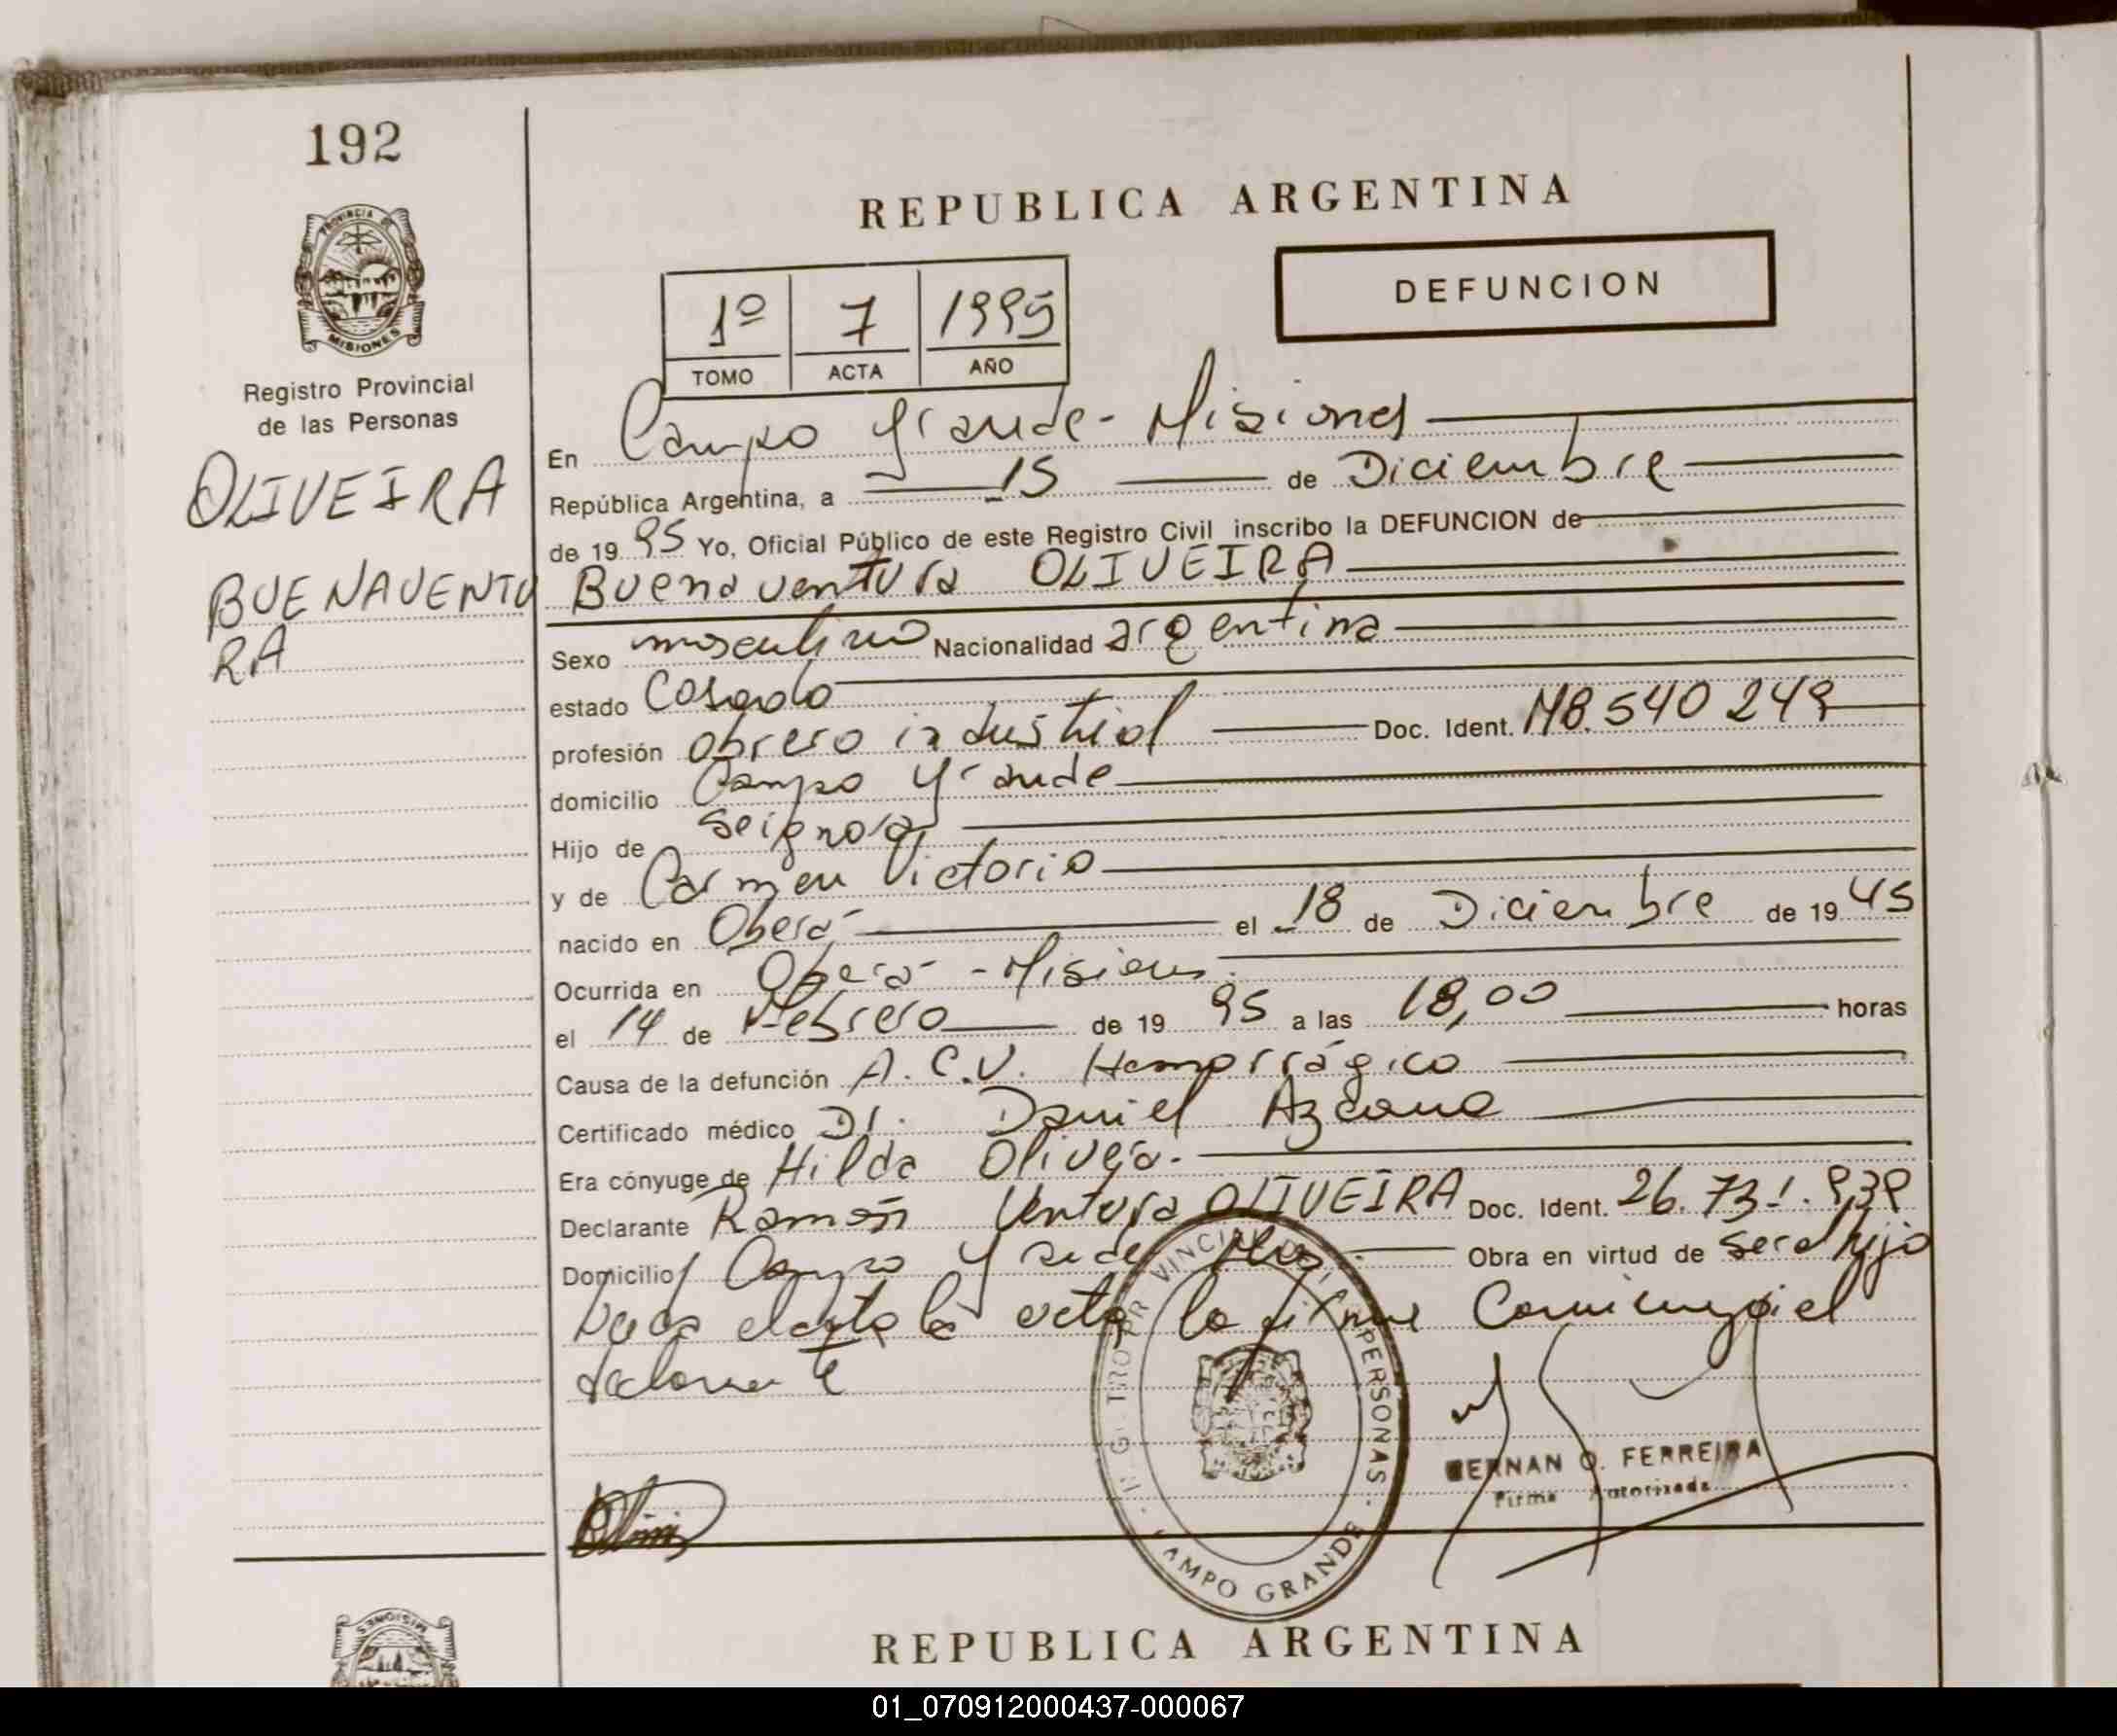 192
PROVINCIA DE
MISIONES
Registro Provincial
de las Personas
OLIVEIRA
BUENAVENTU
RA
REPUBLICA ARGENTINA
DEFUNCION
1º 7 1995
TOMO ACTA AÑO
En Campo Grande - Misiones
República Argentina, a 15 de Diciembre
de 19 95 Yo, Oficial Público de este Registro Civil inscribo la DEFUNCION de
Buenaventura OLIVEIRA
Sexo masculino Nacionalidad argentina
estado Casado
profesión obrero industrial Doc. Ident. M8.540 249
domicilio Campo Grande
Hijo de
y de Carmen Victorio
nacido en Oberá el 18 de Diciembre de 19 45
Ocurrida en Oberá - Misiones
el 14 de Febrero de 19 95 a las 18,00 horas
Causa de la defunción A.C.V. Hemorrágico
Certificado médico Dr. Daniel Azcona
Era cónyuge de Hilda
Declarante Ramón Ventura OLIVEIRA Doc. Ident. 26.731.
Domicilio Campo Mnes Obra en virtud de ser el hijo
acta la firma
declarante
PERSONAS
CAMPO GRANDE
O. FERREIRA
Firma Autorizada
REPUBLICA ARGENTINA
MISIONES
01_070912000437-000067